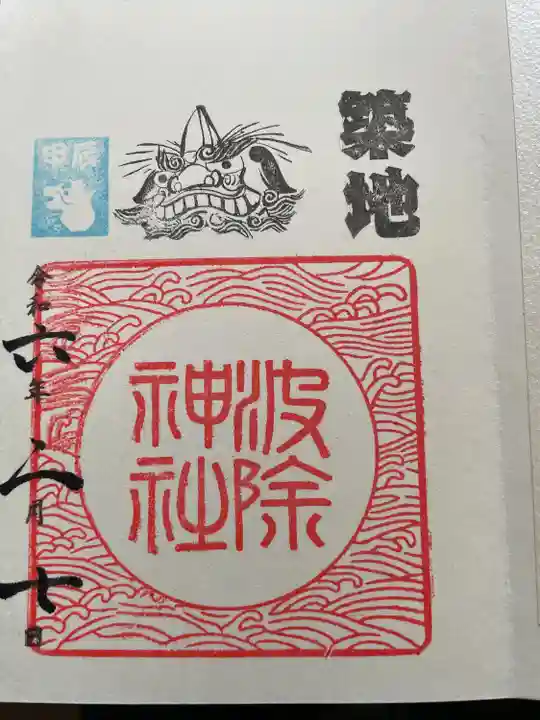 築地
甲辰
波除
神社
令和六年 月十日